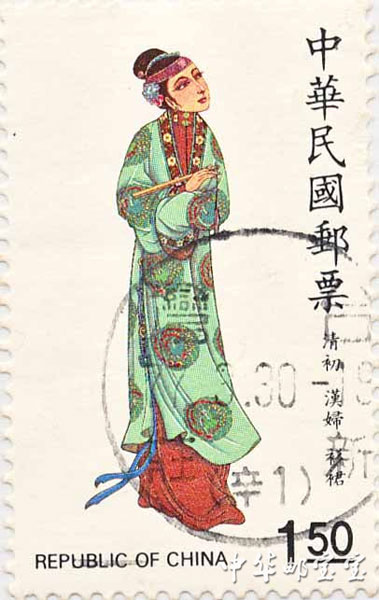 中華民國郵票
清初 漢婦 襖裙
灣
.30-19
新
辛1)
1.50
REPUBLIC OF CHINA
中华邮宝宝